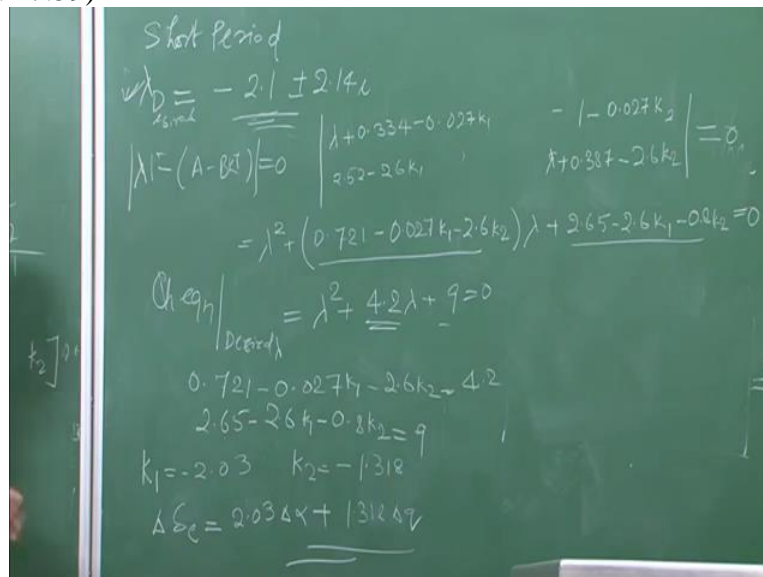 Short Period
λ_Desired = - 2.1 ± 2.14i
|λI - (A - BKᵀ)| = 0
| λ+0.334-0.027k₁   -1-0.027k₂ |
| 2.52-2.6k₁   λ+0.387-2.6k₂ | = 0
= λ² + (0.721-0.027k₁-2.6k₂)λ + 2.65-2.6k₁-0.8k₂ = 0
Ch eqn|Desired λ = λ² + 4.2λ + 9 = 0
0.721-0.027k₁-2.6k₂ = 4.2
2.65-2.6k₁-0.8k₂ = 9
k₁ = -2.03   k₂ = -1.318
Δδe = 2.03Δα + 1.318Δq
k₂]